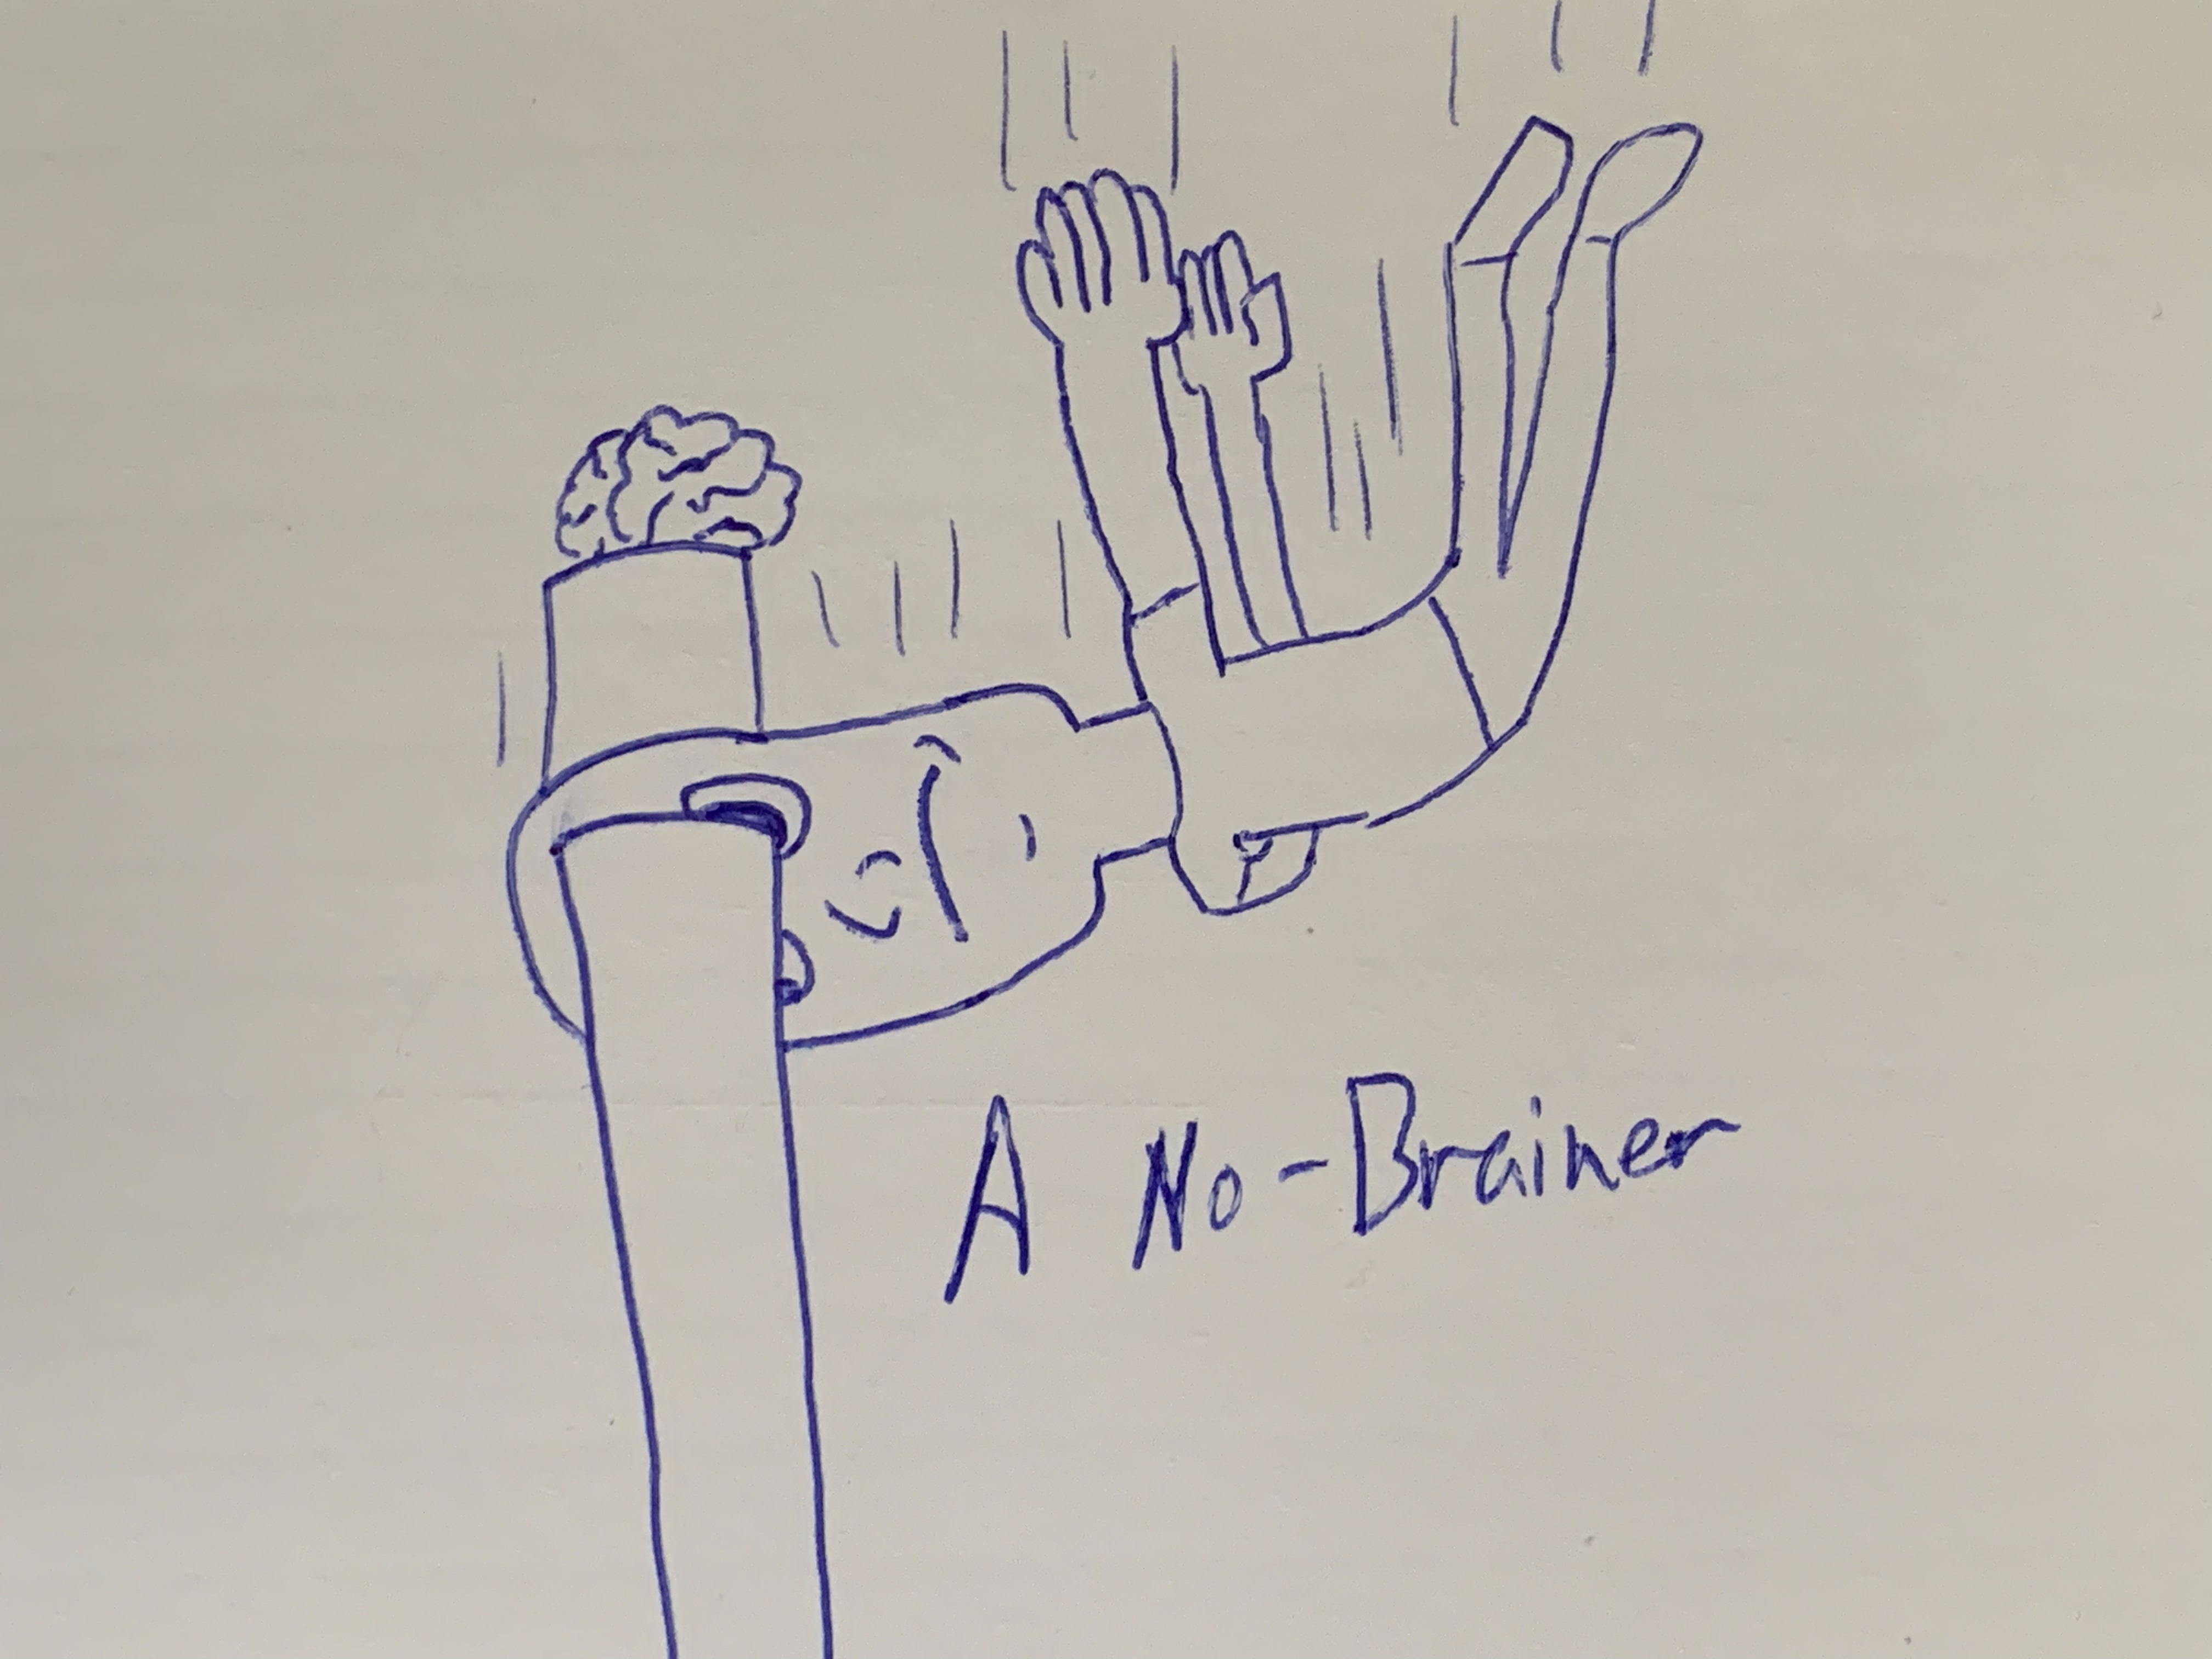 A No-Brainer